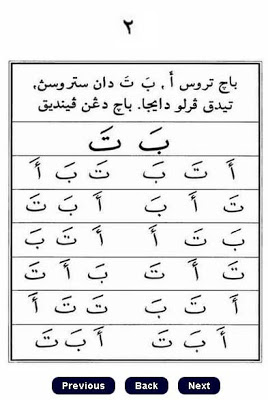 ٢
باچ تروس أ , بَ تَ دان ستروسڽ,
تيدق ڤرلو دايجا. باچ دڠن ڤينديق
بَ تَ
أَ تَ بَ تَ بَ أَ
تَ أَ بَ أَ بَ تَ
بَ تَ أَ أَ تَ بَ
تَ أَ تَ بَ أَ تَ
أَ تَ بَ تَ تَ أَ
أَ بَ تَ أَ بَ تَ
Previous Back Next